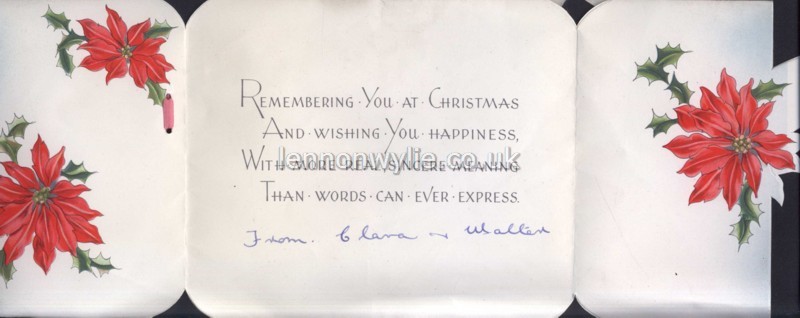 REMEMBERING · YOU · AT · CHRISTMAS
AND · WISHING · YOU · HAPPINESS,
WITH · MORE · REAL, SINCERE · MEANING
THAN · WORDS · CAN · EVER · EXPRESS.
lennonwylie.co.uk
From. Clara + Walter